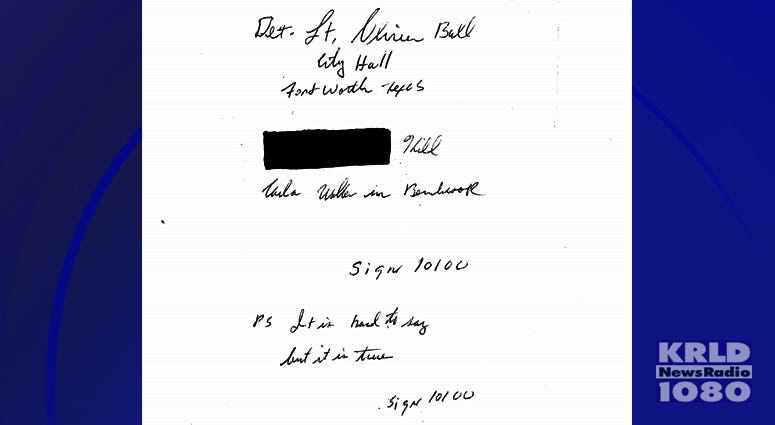 Det. Lt. Oliver Ball
City Hall
Fort Worth Texas
Kill
Carla Walker in Benbrook
Sign 10100
PS It is hard to say
but it is true
Sign 10100
KRLD
NewsRadio
1080